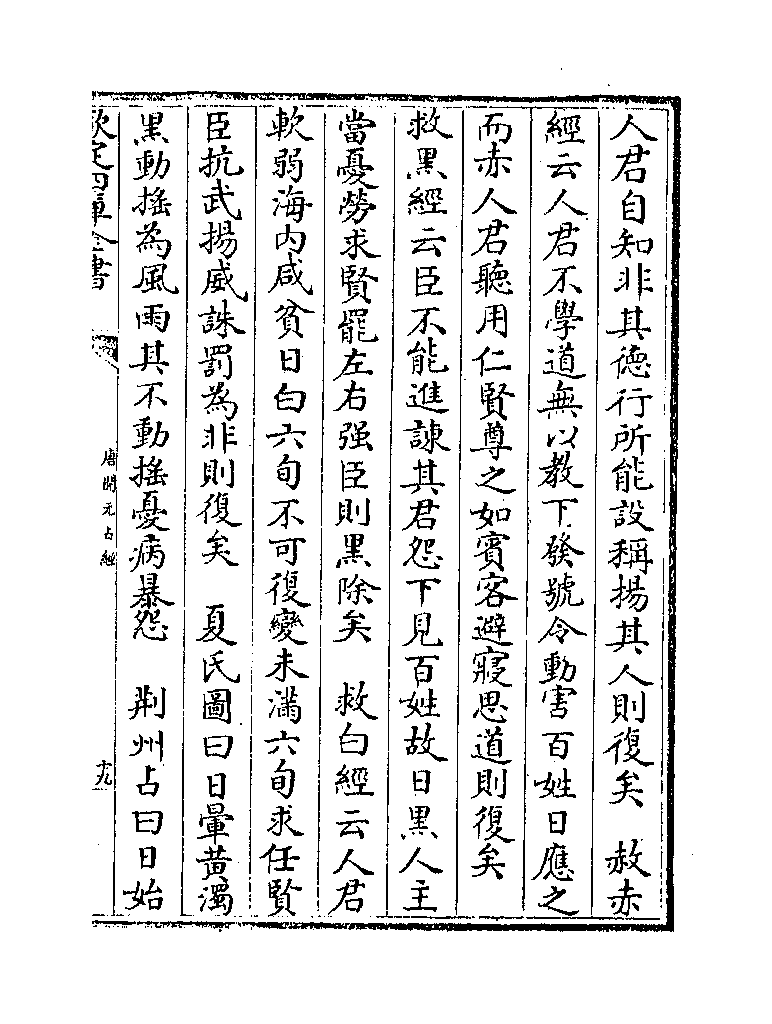 人君自知非其德行所能設稱揚其人則復矣　赦赤
經云人君不學道無以教下發號令動害百姓日應之
而赤人君聽用仁賢尊之如賓客避寢思道則復矣
救黑經云臣不能進諫其君怨下見百姓故日黑人主
當憂勞求賢罷左右强臣則黑除矣　救白經云人君
軟弱海内咸貧日白六旬不可復變未滿六旬求任賢
臣抗武揚威誅罰為非則復矣　夏氏圖曰日暈黄濁
黑動搖為風雨其不動搖憂病暴怨　荆州占曰日始
欽定四庫全書
唐開元占經
十九